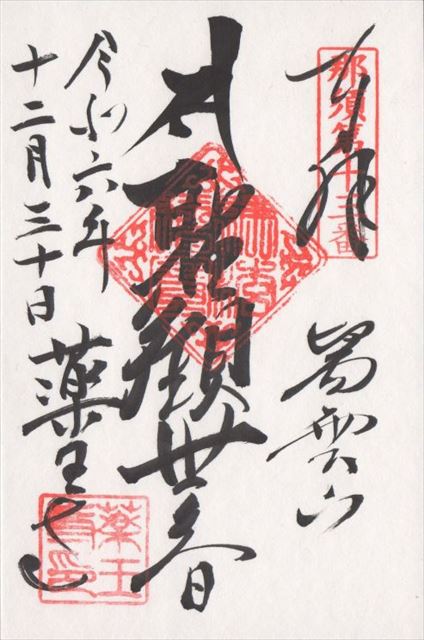 奉拝
那須第十三番
雲山
聖観世音
令和六年
十二月三十日
薬王寺
薬王寺印